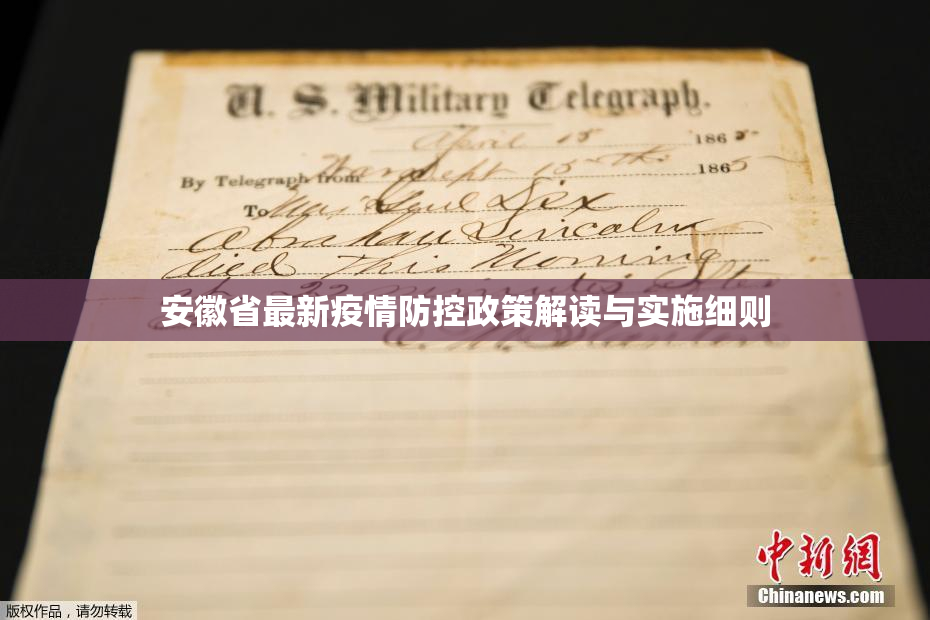 U. S. Military Telegraph.
April 15 1865
By Telegraph from War Dept 15th 1865
To Maj Genl Dix
Abraham Lincoln
died This Morning
at 22 minutes after
安徽省最新疫情防控政策解读与实施细则
E. M. Stanton
中新网
Chinanews.com
版权作品，请勿转载